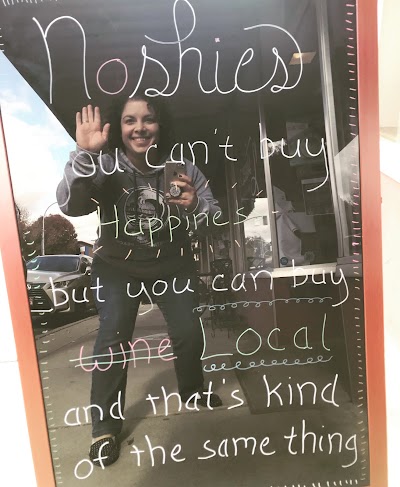 Noshies
You can't buy
Happiness
but you can buy
wine Local
and that's kind
of the same thing